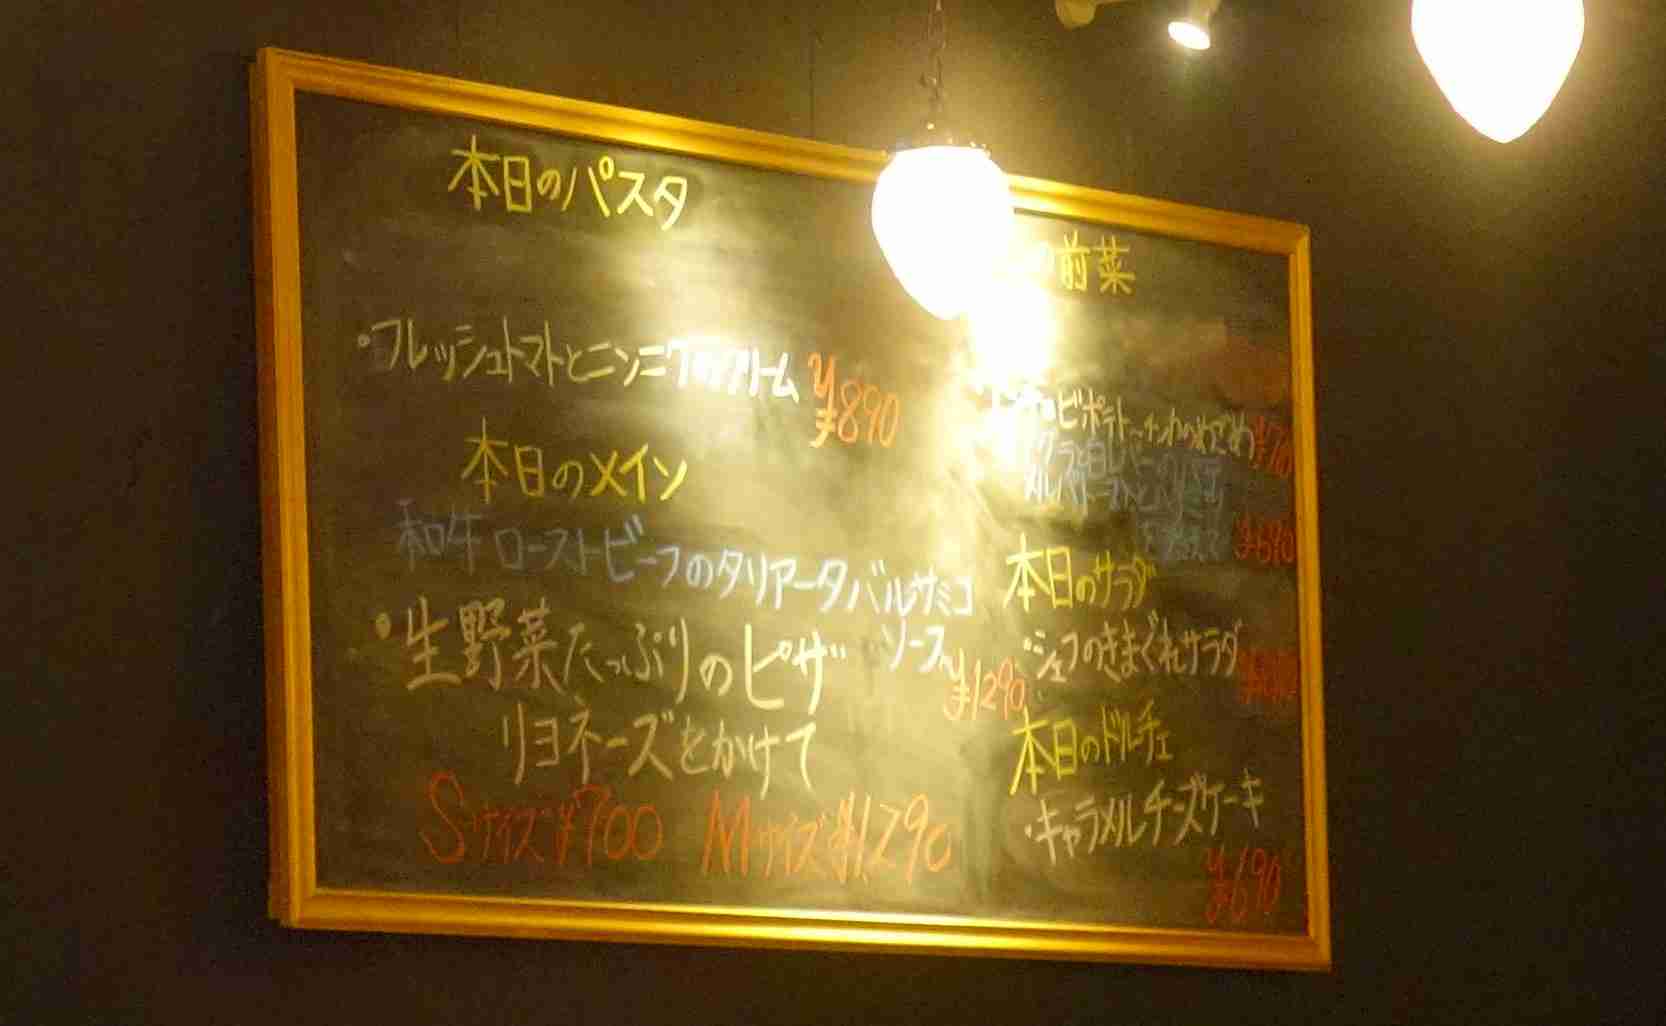 本日のパスタ
・フレッシュトマトとニンニクのクリーム ¥890
本日のメイン
和牛ローストビーフのタリアータバルサミコ
ソース ¥1290
・生野菜たっぷりのピザ
リヨネーズをかけて
Sサイズ¥700 Mサイズ¥1290
前菜
¥690
本日のサラダ
・シェフのきまぐれサラダ
本日のドルチェ
・キャラメルチーズケーキ
¥690